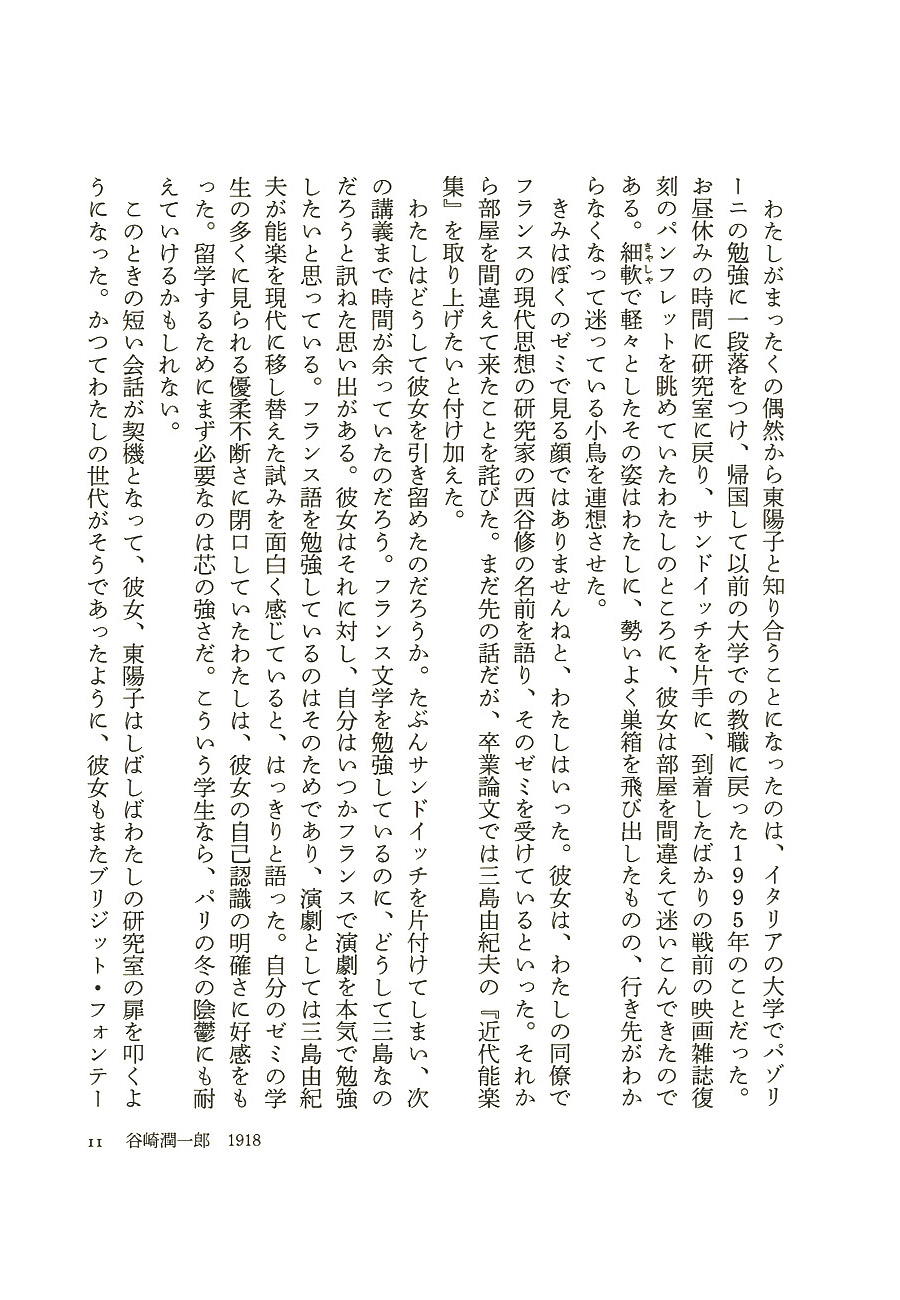 わたしがまったくの偶然から東陽子と知り合うことになったのは、イタリアの大学でパゾリ
ーニの勉強に一段落をつけ、帰国して以前の大学での教職に戻った1995年のことだった。
お昼休みの時間に研究室に戻り、サンドイッチを片手に、到着したばかりの戦前の映画雑誌復
刻のパンフレットを眺めていたわたしのところに、彼女は部屋を間違えて迷いこんできたので
ある。細軟きゃしゃで軽々としたその姿はわたしに、勢いよく巣箱を飛び出したものの、行き先がわか
らなくなって迷っている小鳥を連想させた。
きみはぼくのゼミで見る顔ではありませんねと、わたしはいった。彼女は、わたしの同僚で
フランスの現代思想の研究家の西谷修の名前を語り、そのゼミを受けているといった。それか
ら部屋を間違えて来たことを詫びた。まだ先の話だが、卒業論文では三島由紀夫の『近代能楽
集』を取り上げたいと付け加えた。
わたしはどうして彼女を引き留めたのだろうか。たぶんサンドイッチを片付けてしまい、次
の講義まで時間が余っていたのだろう。フランス文学を勉強しているのに、どうして三島なの
だろうと訊ねた思い出がある。彼女はそれに対し、自分はいつかフランスで演劇を本気で勉強
したいと思っている。フランス語を勉強しているのはそのためであり、演劇としては三島由紀
夫が能楽を現代に移し替えた試みを面白く感じていると、はっきりと語った。自分のゼミの学
生の多くに見られる優柔不断さに閉口していたわたしは、彼女の自己認識の明確さに好感をも
った。留学するためにまず必要なのは芯の強さだ。こういう学生なら、パリの冬の陰鬱にも耐
えていけるかもしれない。
このときの短い会話が契機となって、彼女、東陽子はしばしばわたしの研究室の扉を叩くよ
うになった。かつてわたしの世代がそうであったように、彼女もまたブリジット・フォンテー
11 谷崎潤一郎 1918